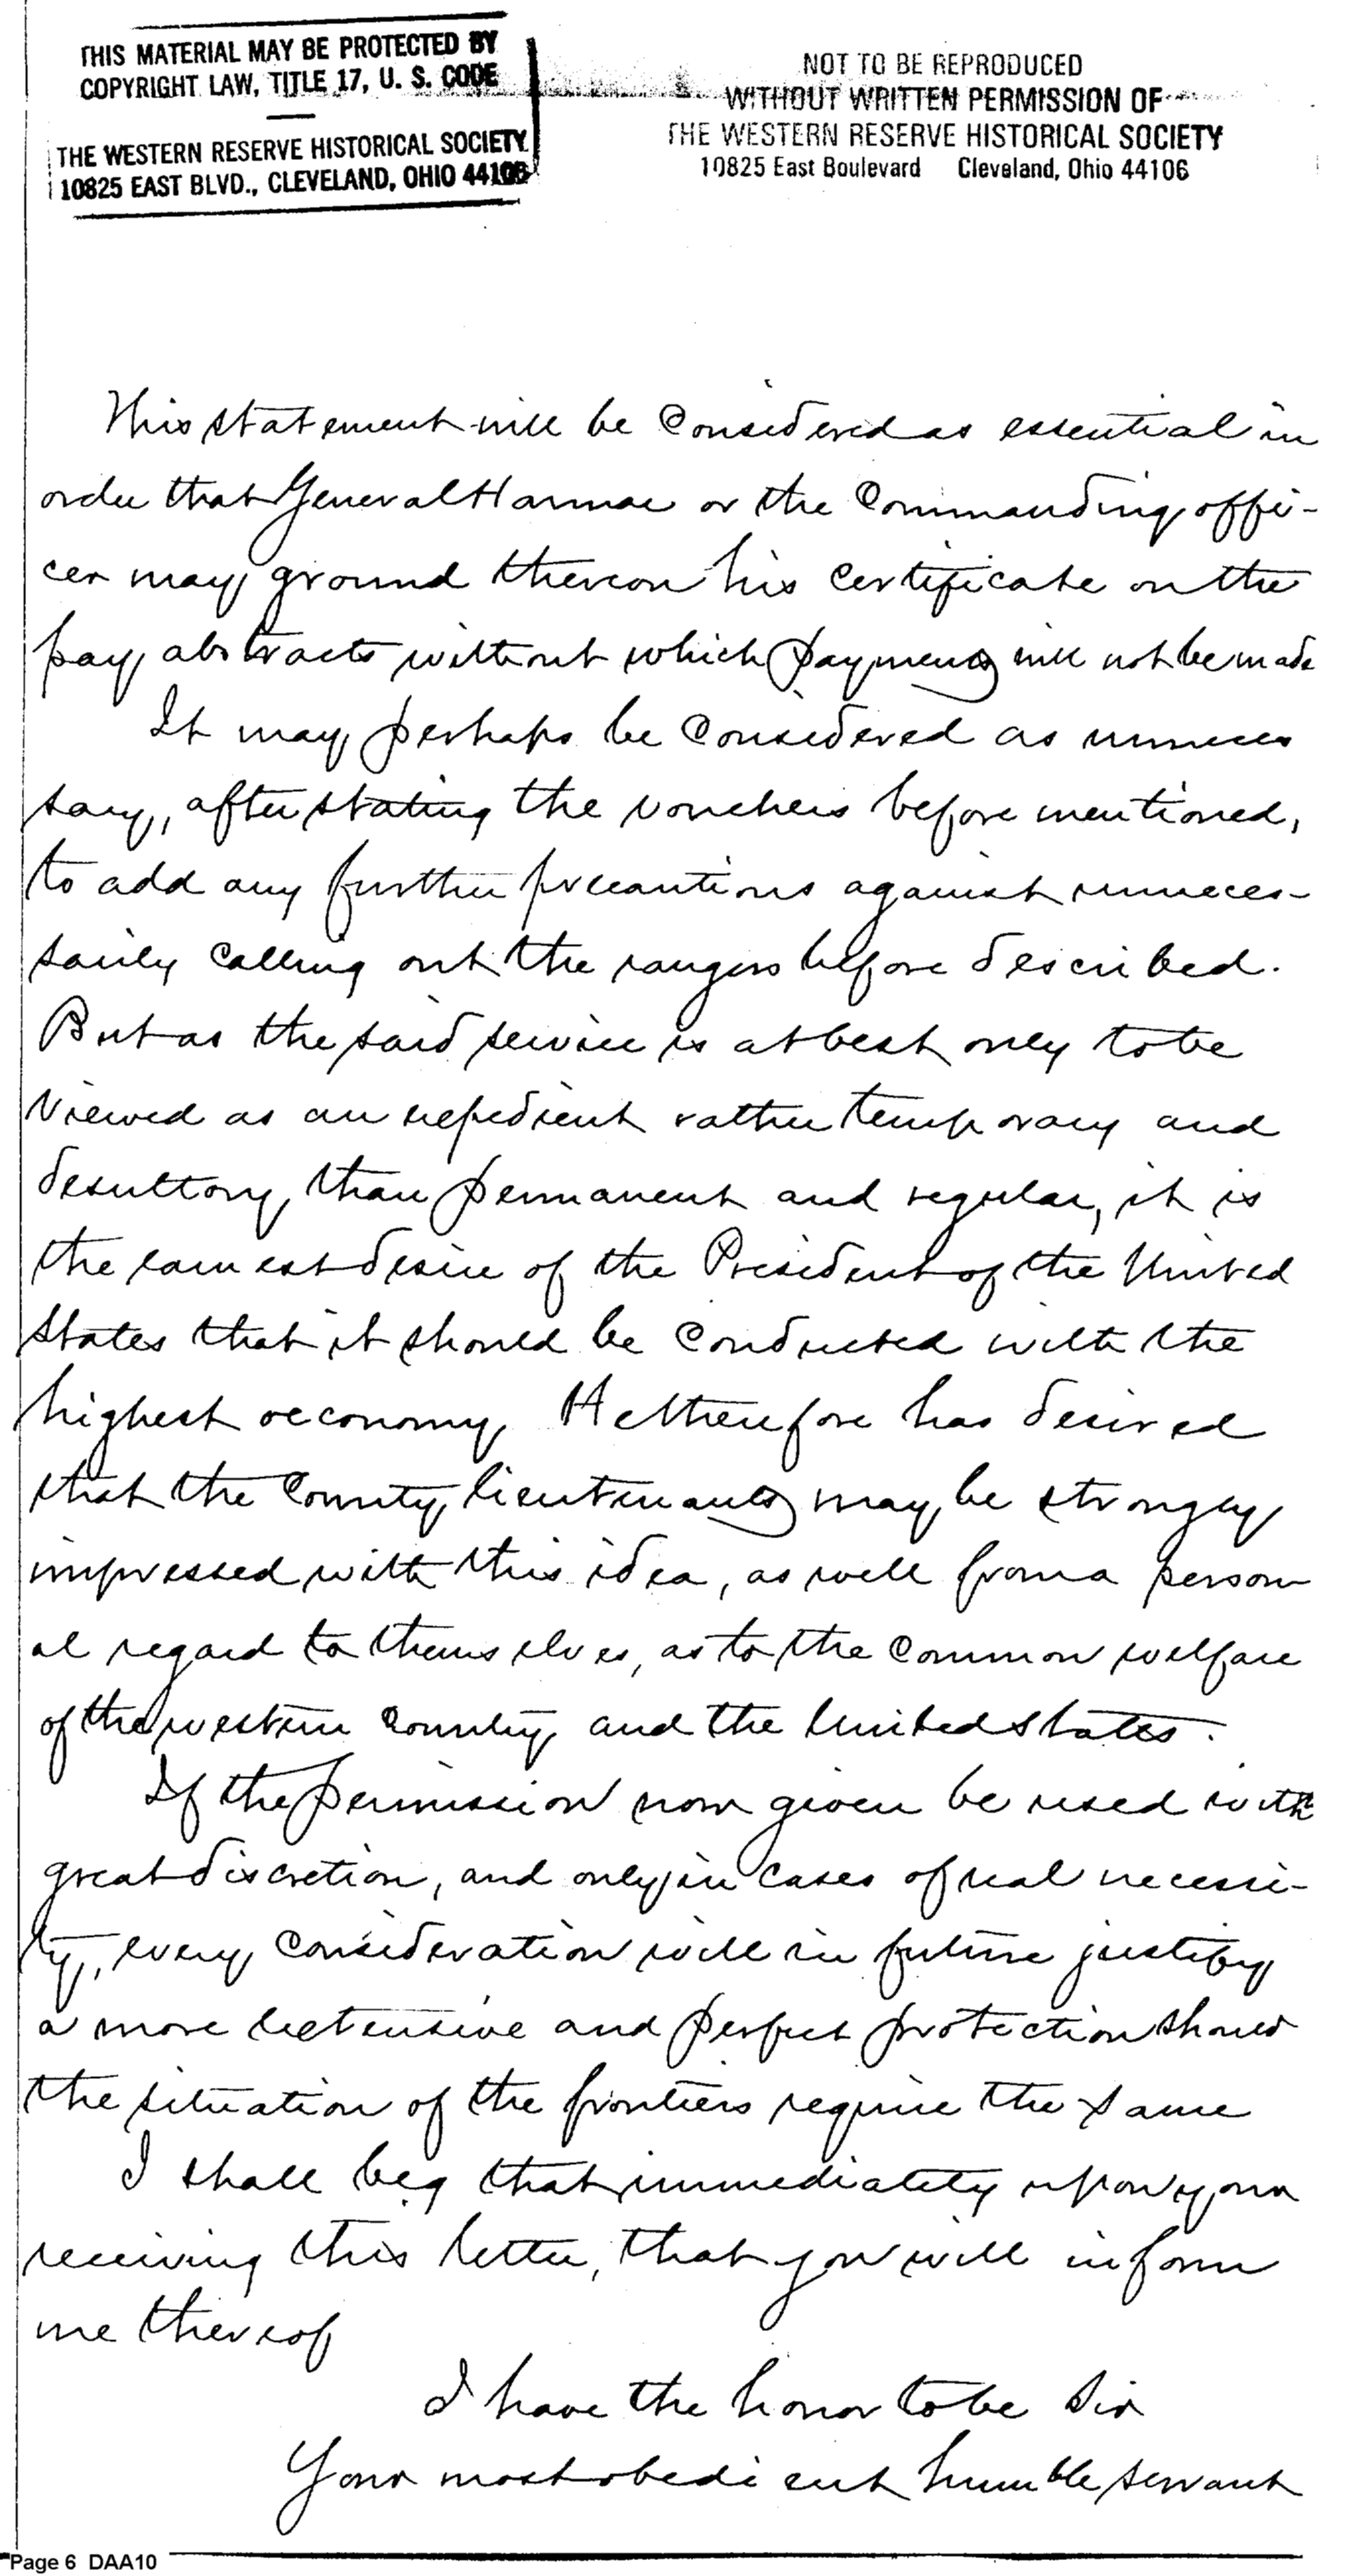 THIS MATERIAL MAY BE PROTECTED BY
COPYRIGHT LAW, TITLE 17, U. S. CODE
THE WESTERN RESERVE HISTORICAL SOCIETY
10825 EAST BLVD., CLEVELAND, OHIO 44106
NOT TO BE REPRODUCED
WITHOUT WRITTEN PERMISSION OF
THE WESTERN RESERVE HISTORICAL SOCIETY
10825 East Boulevard Cleveland, Ohio 44106
This statement will be considered as essential in
order that General Harmar or the Commanding offi-
cer may ground thereon his certificate on the
pay abstracts without which payments will not be made
It may perhaps be considered as unneces
sary, after stating the vouchers before mentioned,
to add any further precautions against unneces-
sarily calling out the rangers before described.
But as the said service is at best only to be
viewed as an expedient rather temporary and
desultory, than permanent and regular, it is
the earnest desire of the President of the United
States that it should be conducted with the
highest oeconomy, He therefore has desired
that the County lieutenants may be strongly
impressed with this idea, as well from a person
al regard to themselves, as to the common welfare
of the western country and the United States.
If the permission now given be used with
great discretion, and only in cases of real necessi-
ty, every consideration will in future justify
a more extensive and perfect protection should
the situation of the frontiers require the same
I shall beg that immediately upon your
receiving this letter, that you will inform
me thereof
I have the honor to be Sir
Your most obedient humble servant
Page 6 DAA10